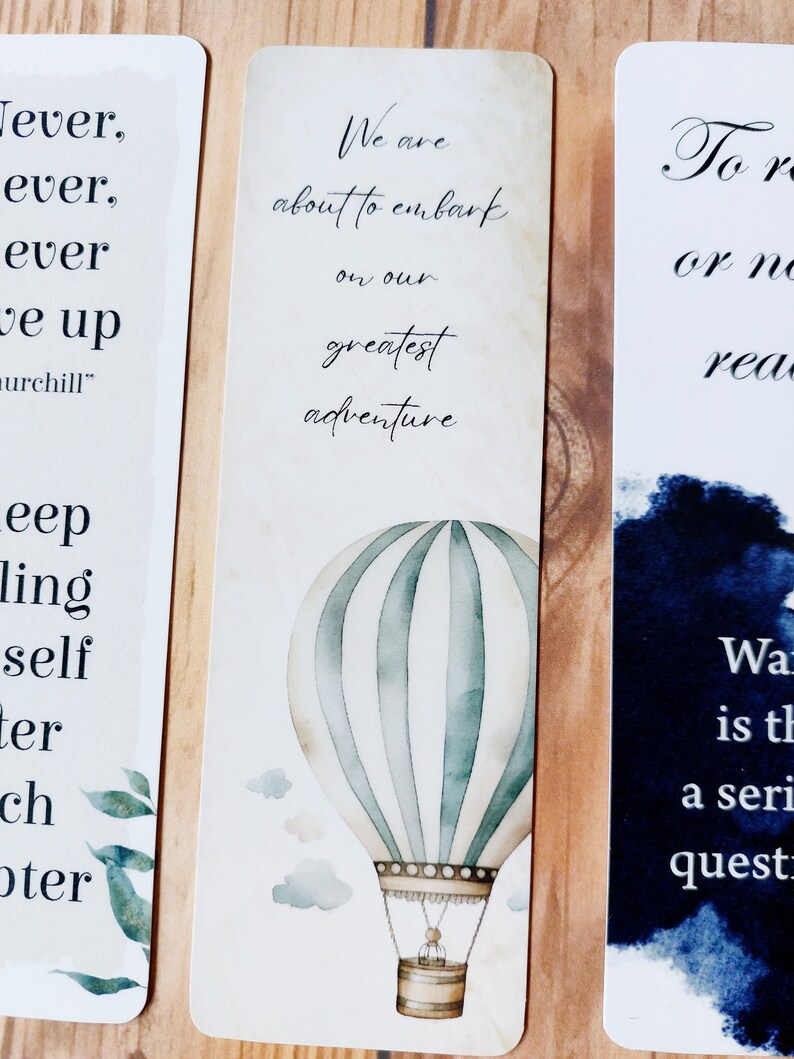 Never,
ever,
ever
ve up
hurchill"
eep
ling
self
ter
ch
pter
We are
about to embark
on our
greatest
adventure
To re
or no
read
Wa
is th
a seri
questi